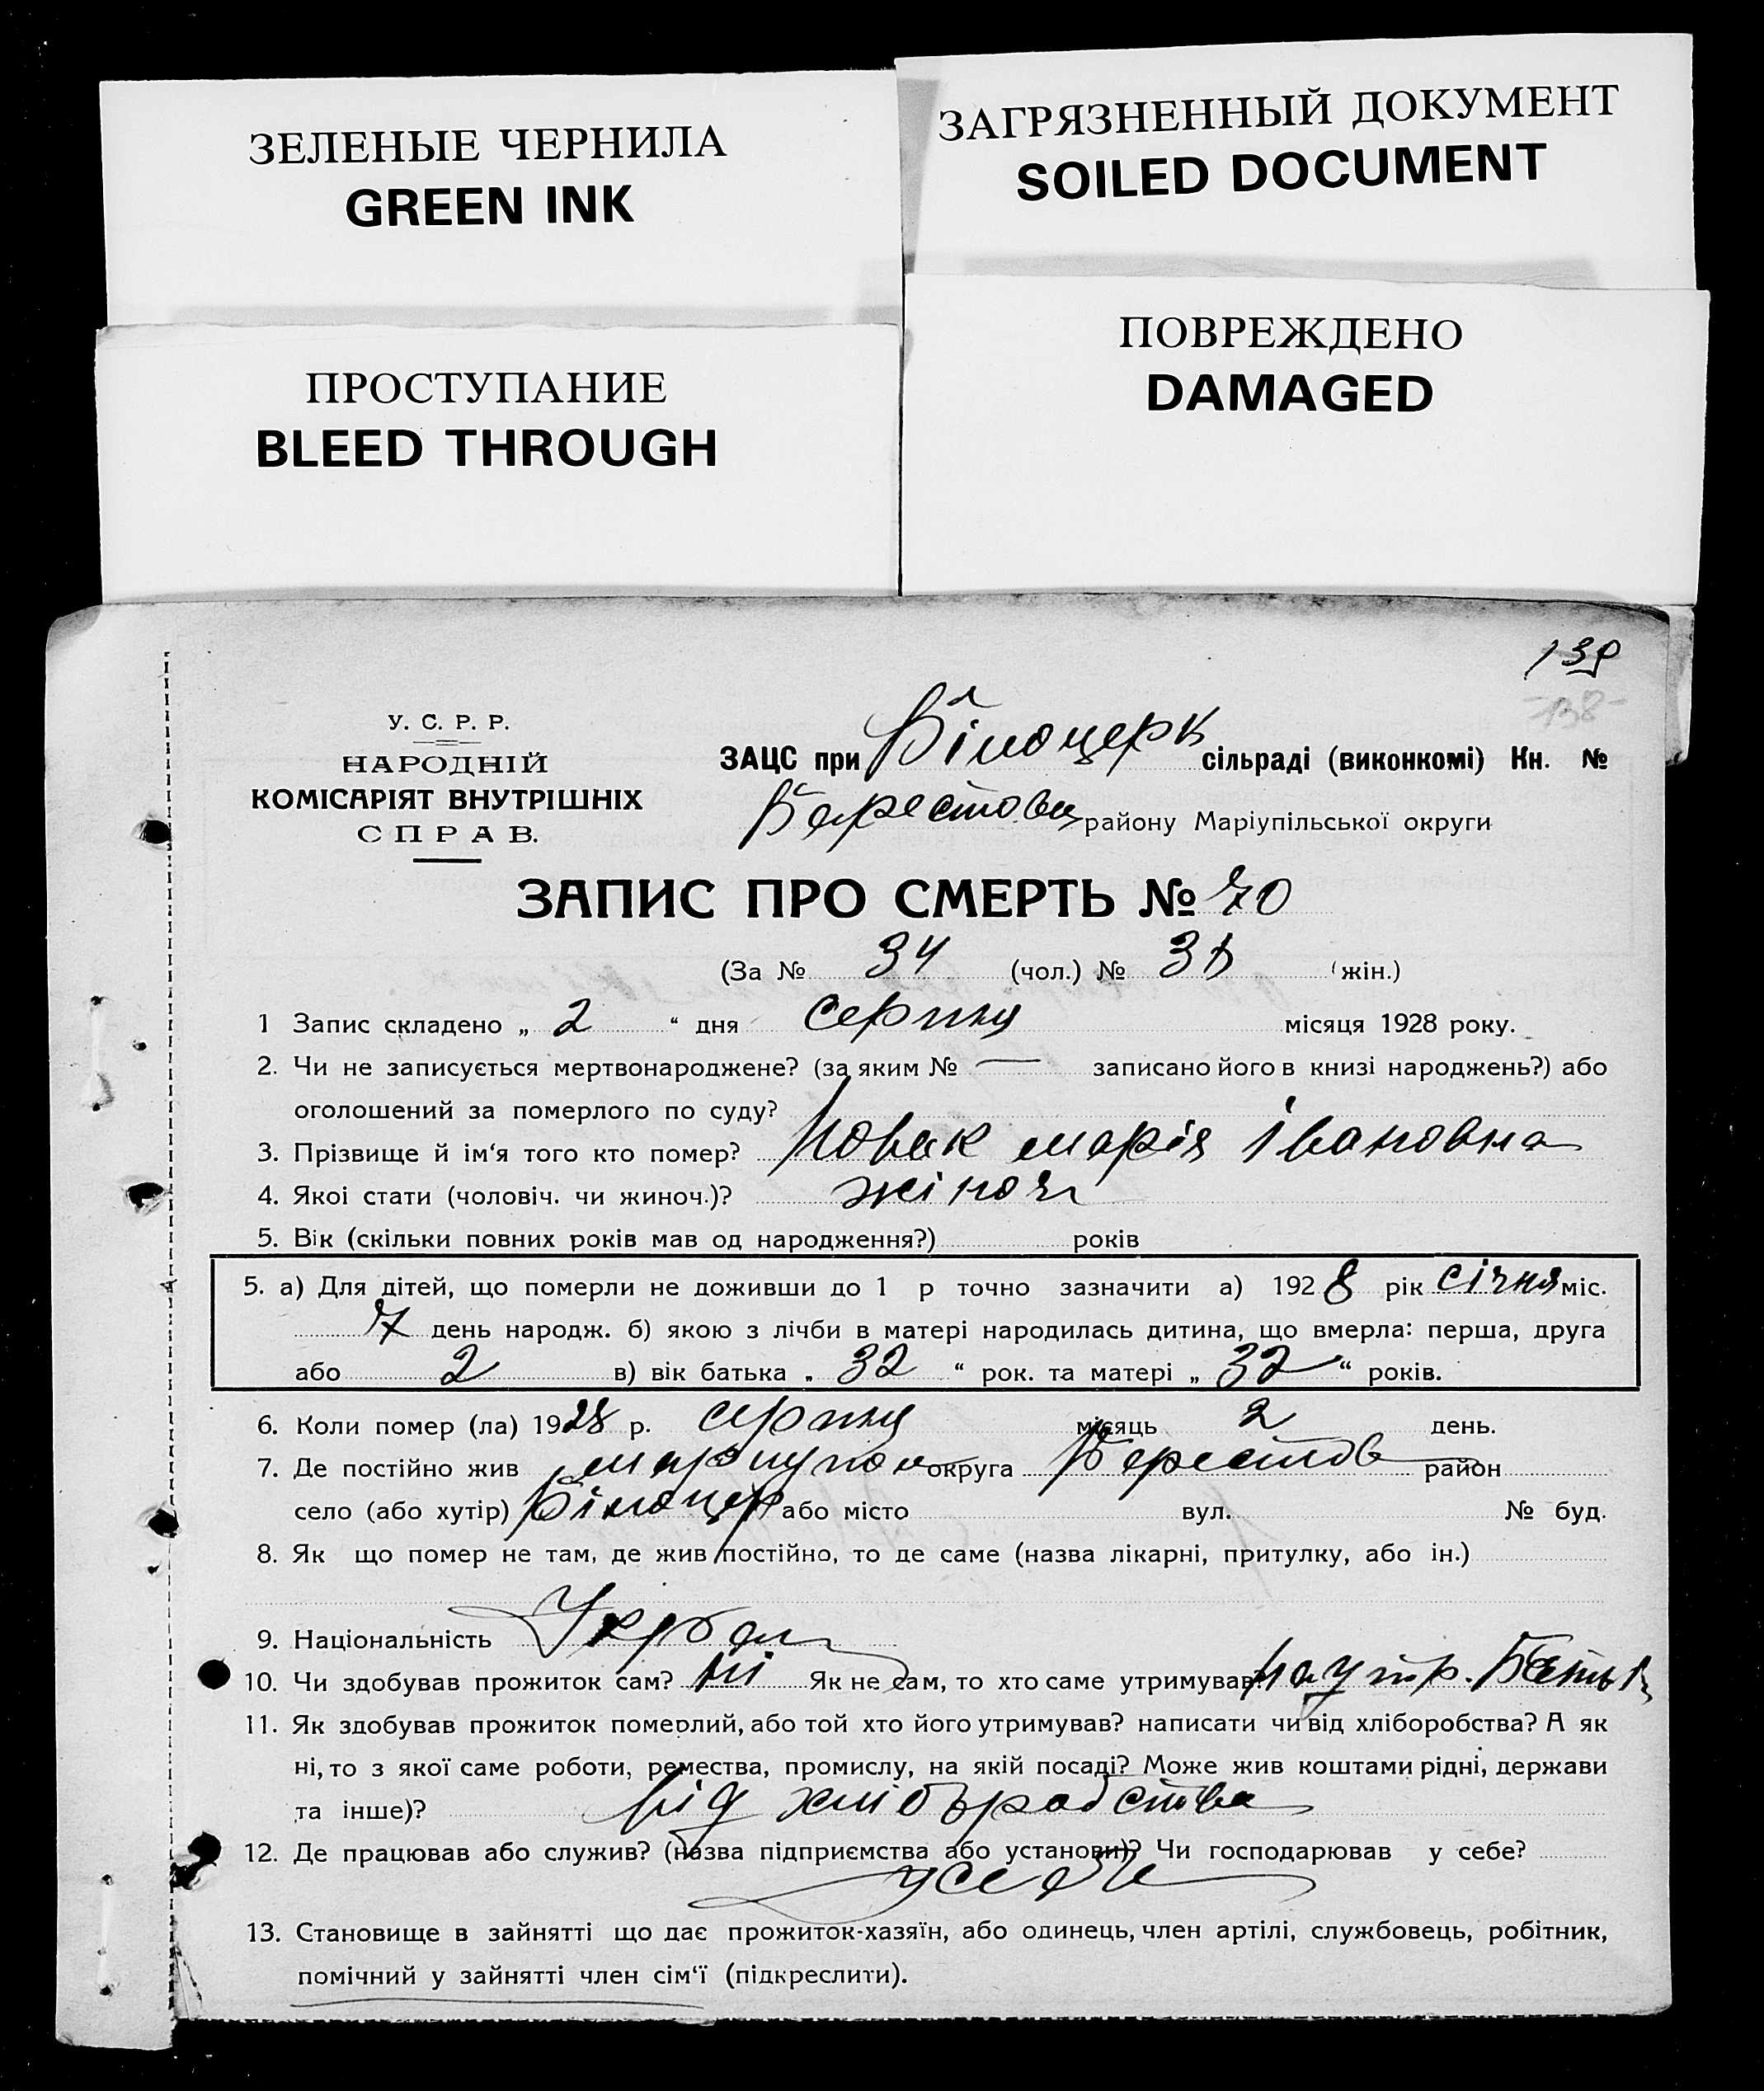 ЗЕЛЕНЫЕ ЧЕРНИЛА
GREEN INK
ЗАГРЯЗНЕННЫЙ ДОКУМЕНТ
SOILED DOCUMENT
ПРОСТУПАНИЕ
BLEED THROUGH
ПОВРЕЖДЕНО
DAMAGED
139
138
У. С. Р. Р.
НАРОДНІЙ
КОМІСАРІЯТ ВНУТРІШНІХ
СПРАВ.
ЗАЦС при Білоцерк сільраді (виконкомі) Кн. №
Берестовец району Маріупільської округи
ЗАПИС ПРО СМЕРТЬ № 70
(За № 34 (чол.) № (жін.)
1 Запис складено „ 2 “ дня серпня місяця 1928 року.
2. Чи не записується мертвонароджене? (за яким № — записано його в книзі народжень?) або
оголошений за померлого по суду?
3. Прізвище й ім‘я того кто помер? Новак марія івановна
4. Якоі стати (чоловіч. чи жиноч.)? жіноч
5. Вік (скільки повних років мав од народження?) років
5. а) Для дітей, що померли не доживши до 1 р точно зазначити а) 1928 рік січня міс.
7 день народж. б) якою з лічби в матері народилась дитина, що вмерла: перша, друга
або 2 в) вік батька „ 32 “ рок. та матері „ 32 “ років.
6. Коли помер (ла) 1928 р. серпня місяць 2 день.
7. Де постійно жив маріупол округа Берестов район
село (або хутір) Білоцер або місто вул. № буд.
8. Як що помер не там, де жив постійно, то де саме (назва лікарні, притулку, або ін.)
9. Національність
10. Чи здобував прожиток сам? ні Як не сам, то хто саме утримував на утр. Батьк
11. Як здобував прожиток померлий, або той хто його утримував? написати чи від хліборобства? А як
ні, то з якої саме роботи, ремества, промислу, на якій посаді? Може жив коштами рідні, держави
та інше)? від хліборобства
12. Де працював або служив? (назва підприємства або установи)? Чи господарював у себе?
у себе
13. Становище в зайнятті що дає прожиток-хазяїн, або одинець, член артілі, службовець, робітник,
помічний у зайнятті член сім‘ї (підкреслити).